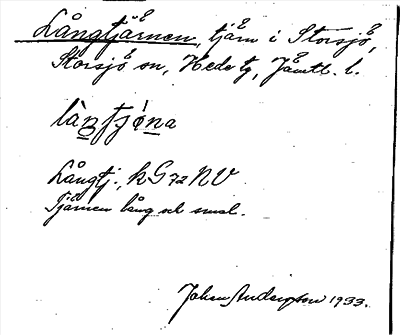 Långtjärnen, tjärn i Storsjö,
Storsjö sn, Hede tg, Jämtl. l.
làntjóna
Långtj., kG72NV
Tjärnen lång och smal.
Johan Anderson 1933.